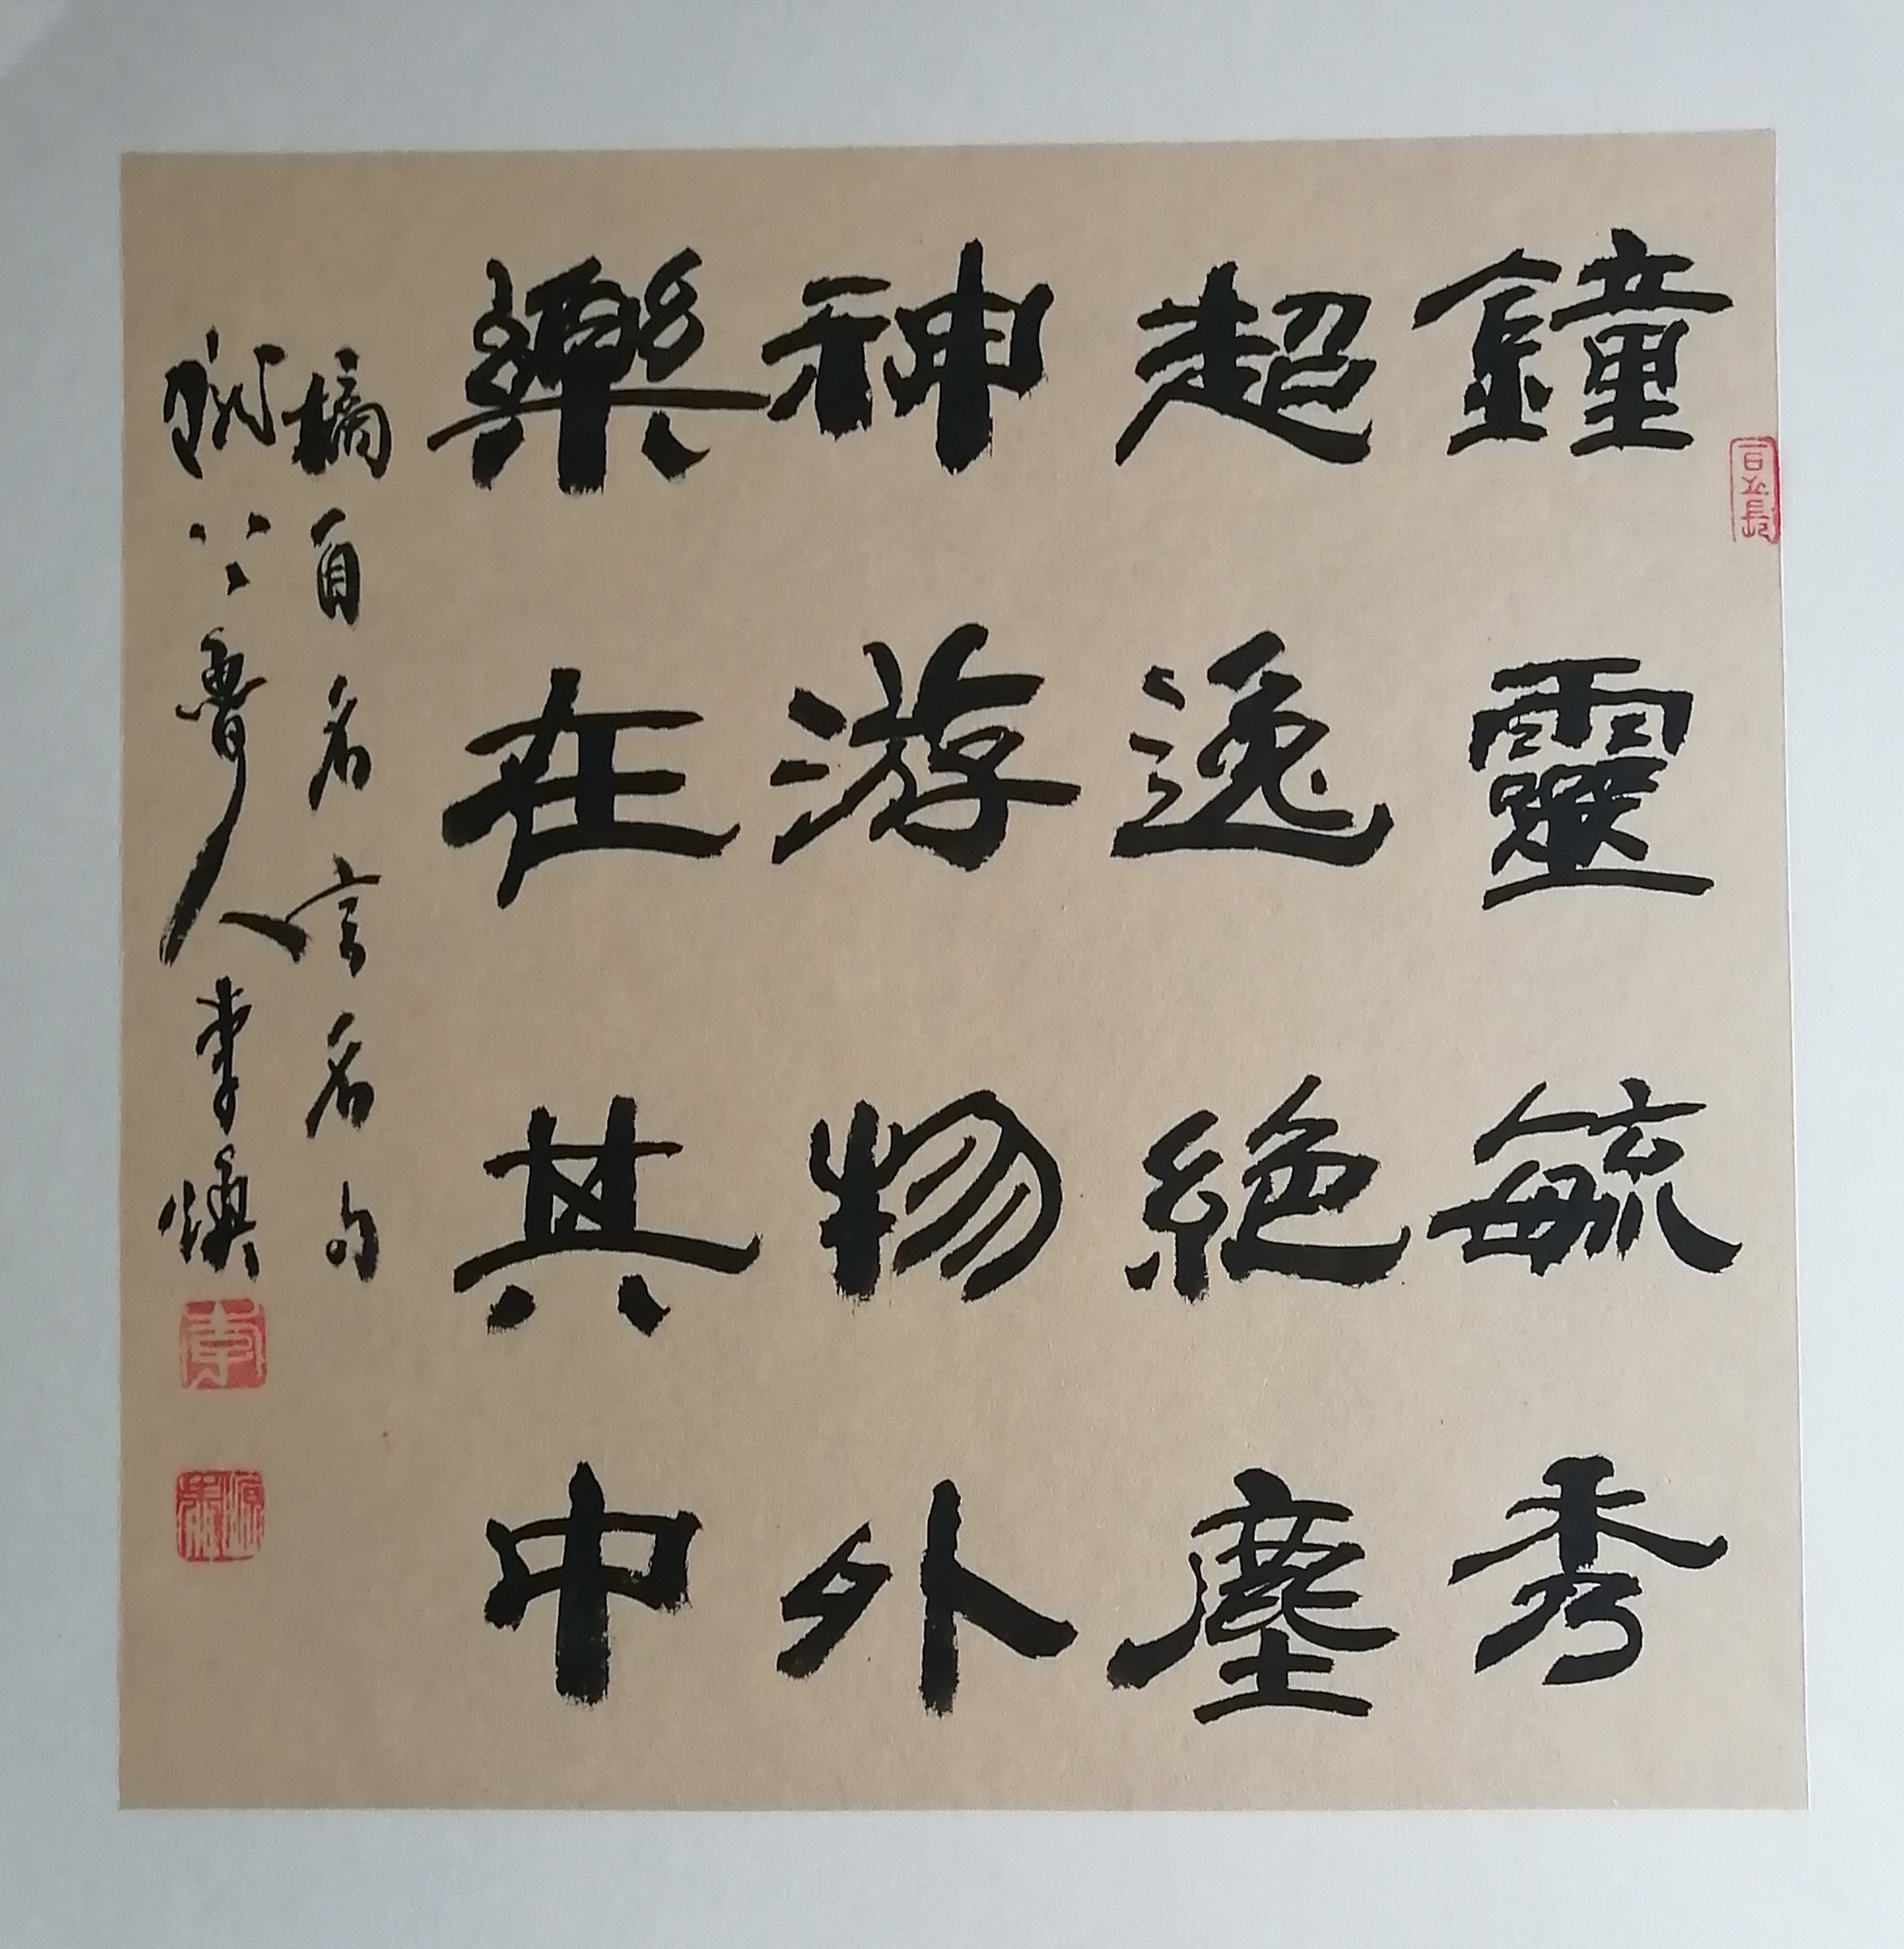 鐘靈毓秀
超逸絶塵
神游物外
樂在其中
摘自名言名句
魯人李煥